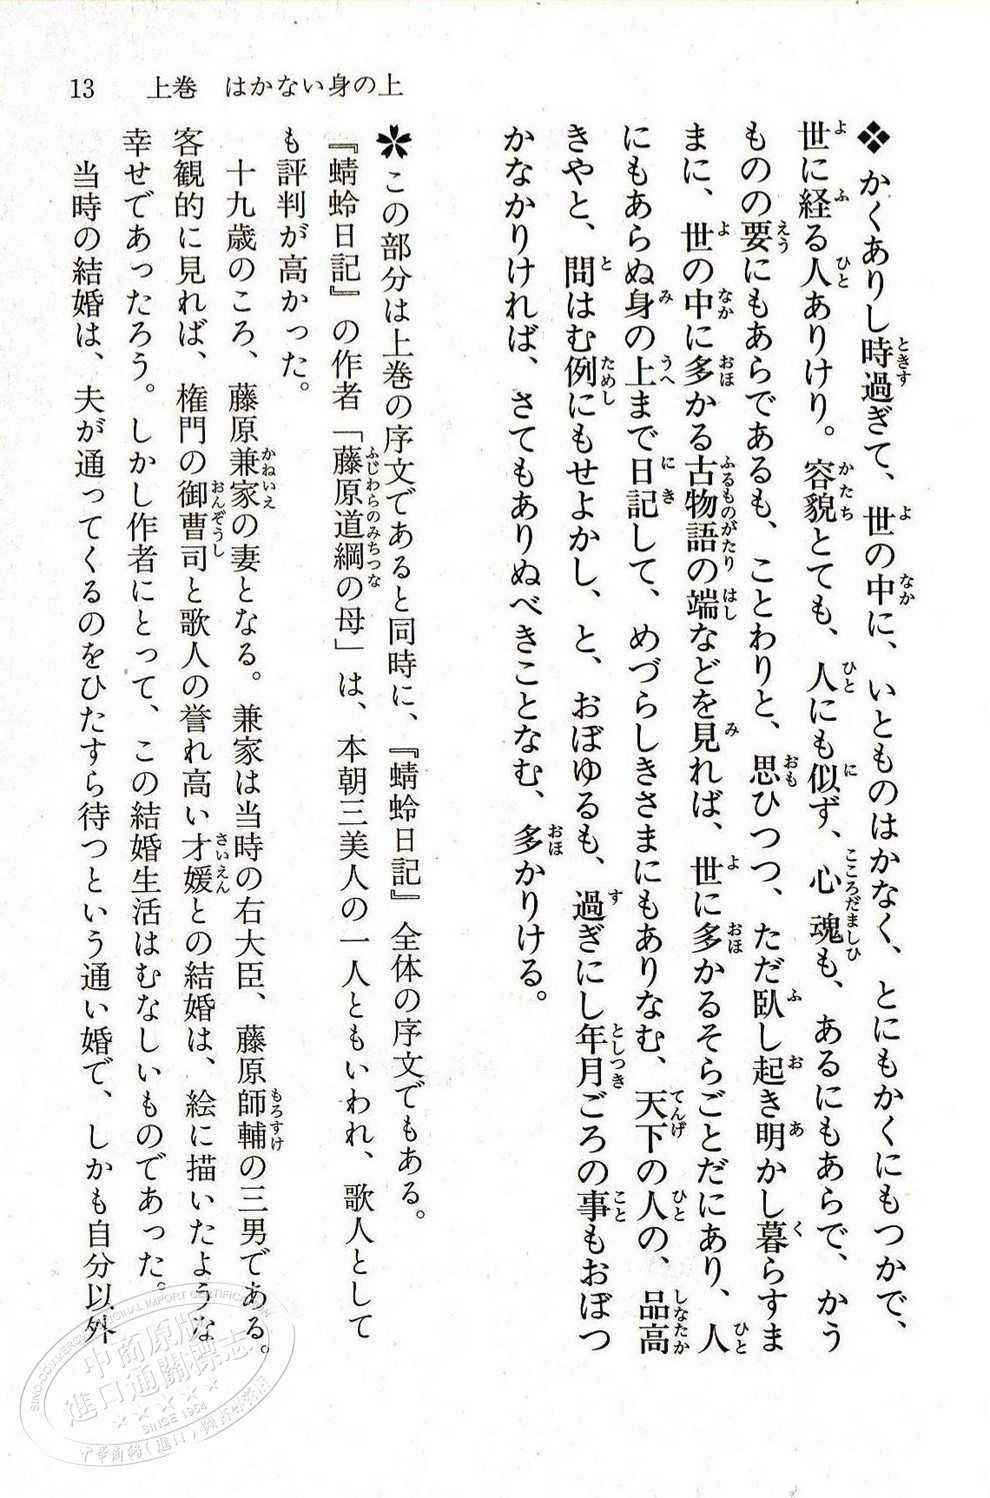 13　上巻　はかない身の上
❖かくありし時過ぎて、世の中に、いとものはかなく、とにもかくにもつかで、
世に経る人ありけり。容貌とても、人にも似ず、心魂も、あるにもあらで、かう
ものの要にもあらであるも、ことわりと、思ひつつ、ただ臥し起き明かし暮らすま
まに、世の中に多かる古物語の端などを見れば、世に多かるそらごとだにあり、人
にもあらぬ身の上まで日記して、めづらしきさまにもありなむ、天下の人の、品高
きやと、問はむ例にもせよかし、と、おぼゆるも、過ぎにし年月ごろの事もおぼつ
かなかりければ、さてもありぬべきことなむ、多かりける。
✽この部分は上巻の序文であると同時に、『蜻蛉日記』全体の序文でもある。
『蜻蛉日記』の作者「藤原道綱の母」は、本朝三美人の一人ともいわれ、歌人として
も評判が高かった。
十九歳のころ、藤原兼家の妻となる。兼家は当時の右大臣、藤原師輔の三男である。
客観的に見れば、権門の御曹司と歌人の誉れ高い才媛との結婚は、絵に描いたような
幸せであったろう。しかし作者にとって、この結婚生活はむなしいものであった。
当時の結婚は、夫が通ってくるのをひたすら待つという通い婚で、しかも自分以外
中商原版
進口通關標志
SINCE 1954